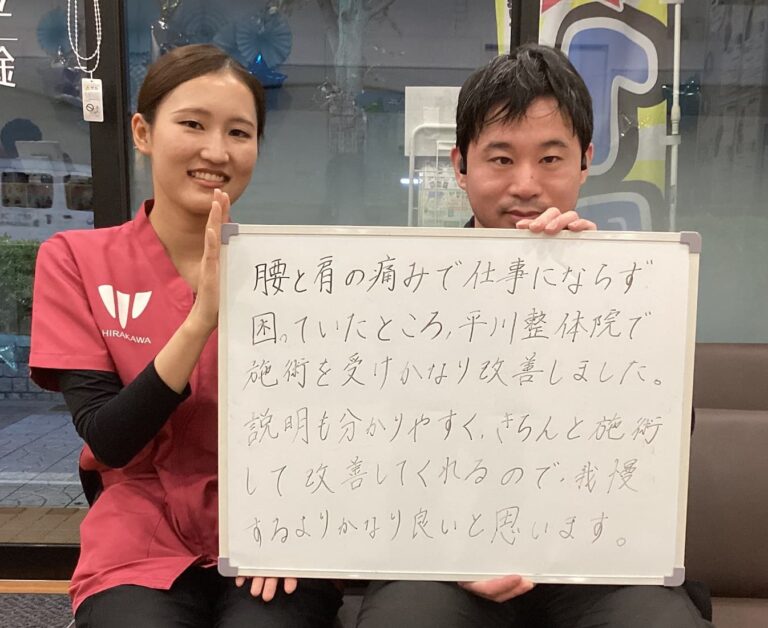 金
HIRAKAWA
腰と肩の痛みで仕事にならず
困っていたところ,平川整体院で
施術を受けかなり改善しました。
説明も分かりやすく、きちんと施術
して改善してくれるので、我慢
するよりかなり良いと思います。